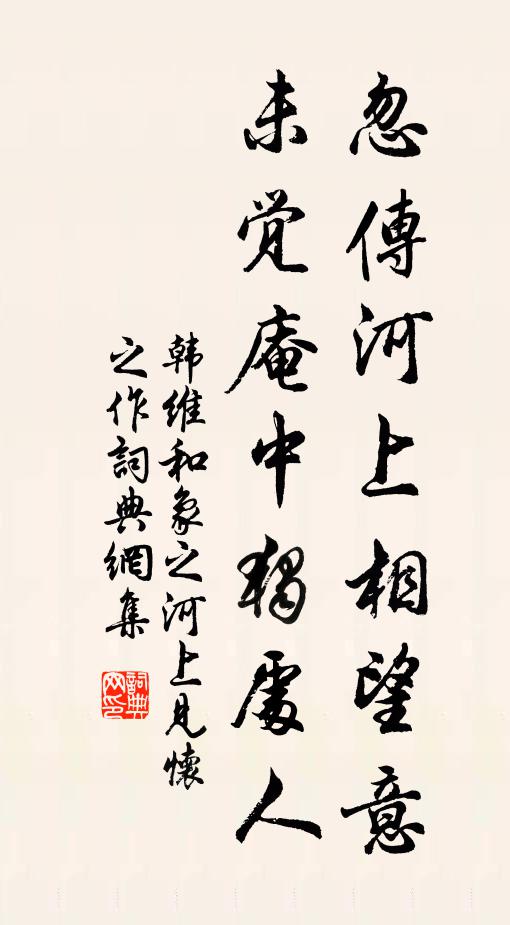 忽傳河上相望意
未覺庵中獨處人
韩維和象之河上見懷
之作詞典網集
詞典网印